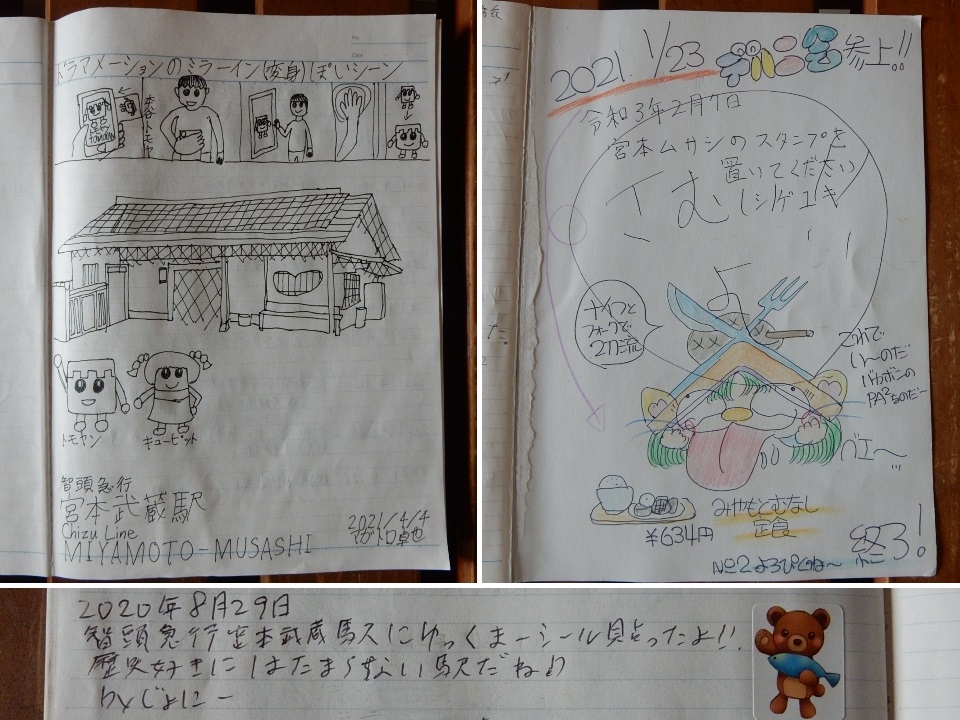 ドラマメーションのミラーイン(変身)ぽいシーン
トモヤン
キューピット
智頭急行
宮本武蔵駅
Chizu Line
MIYAMOTO-MUSASHI
2021/4/4
卓也
2021. 1/23
参上!!
令和3年2月7日
宮本ムサシのスタンプを
置いてください
さむ
シゲユキ
ナイフと
フォークで
2刀流
これで
い〜のだ
バカボンの
PAPAなのだ〜
バエ〜
みやもとむなし
定食
¥634円
終了!
No.2よろぴくね〜
2020年8月29日
智頭急行宮本武蔵駅にゆっくまーシール貼ったよ!!
歴史好きにはたまらない駅だね♪
byじょにー